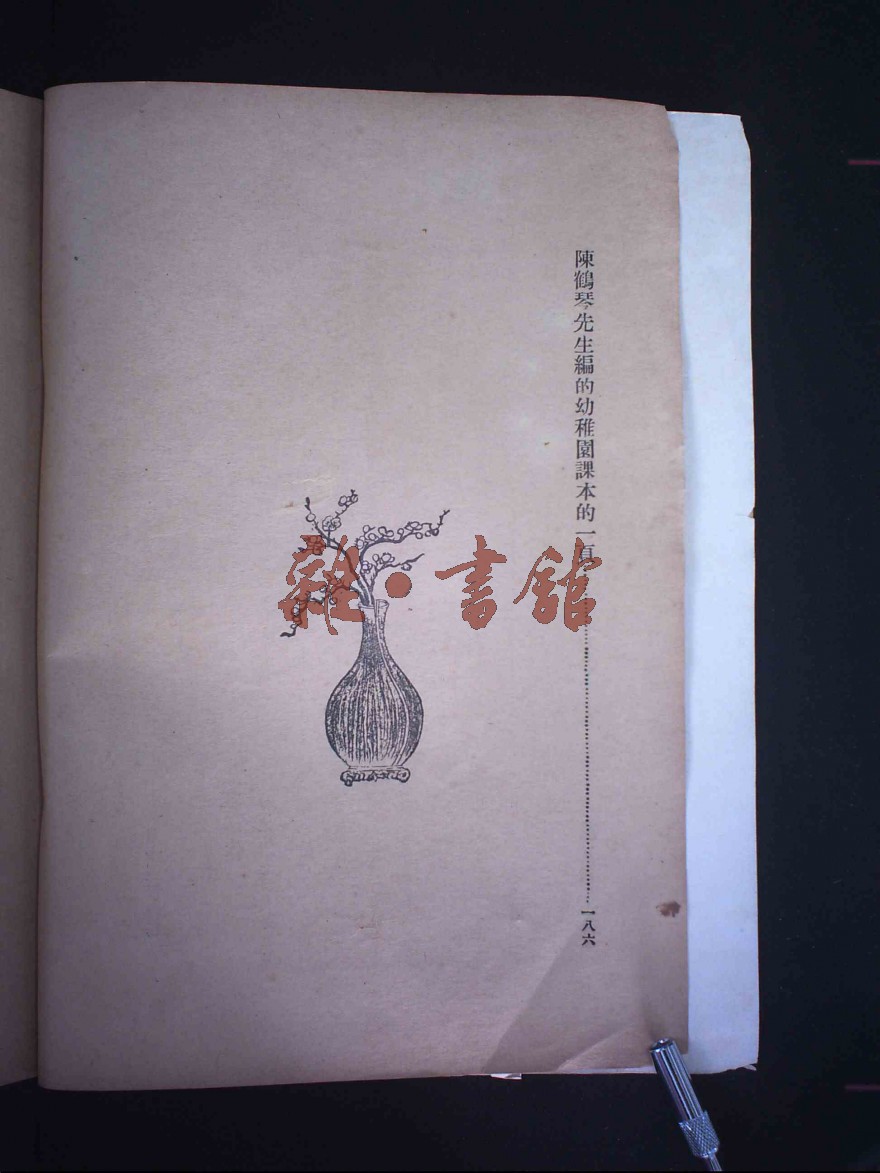 陳鶴琴先生編的幼稚園課本的一頁……一八六
雜·書館